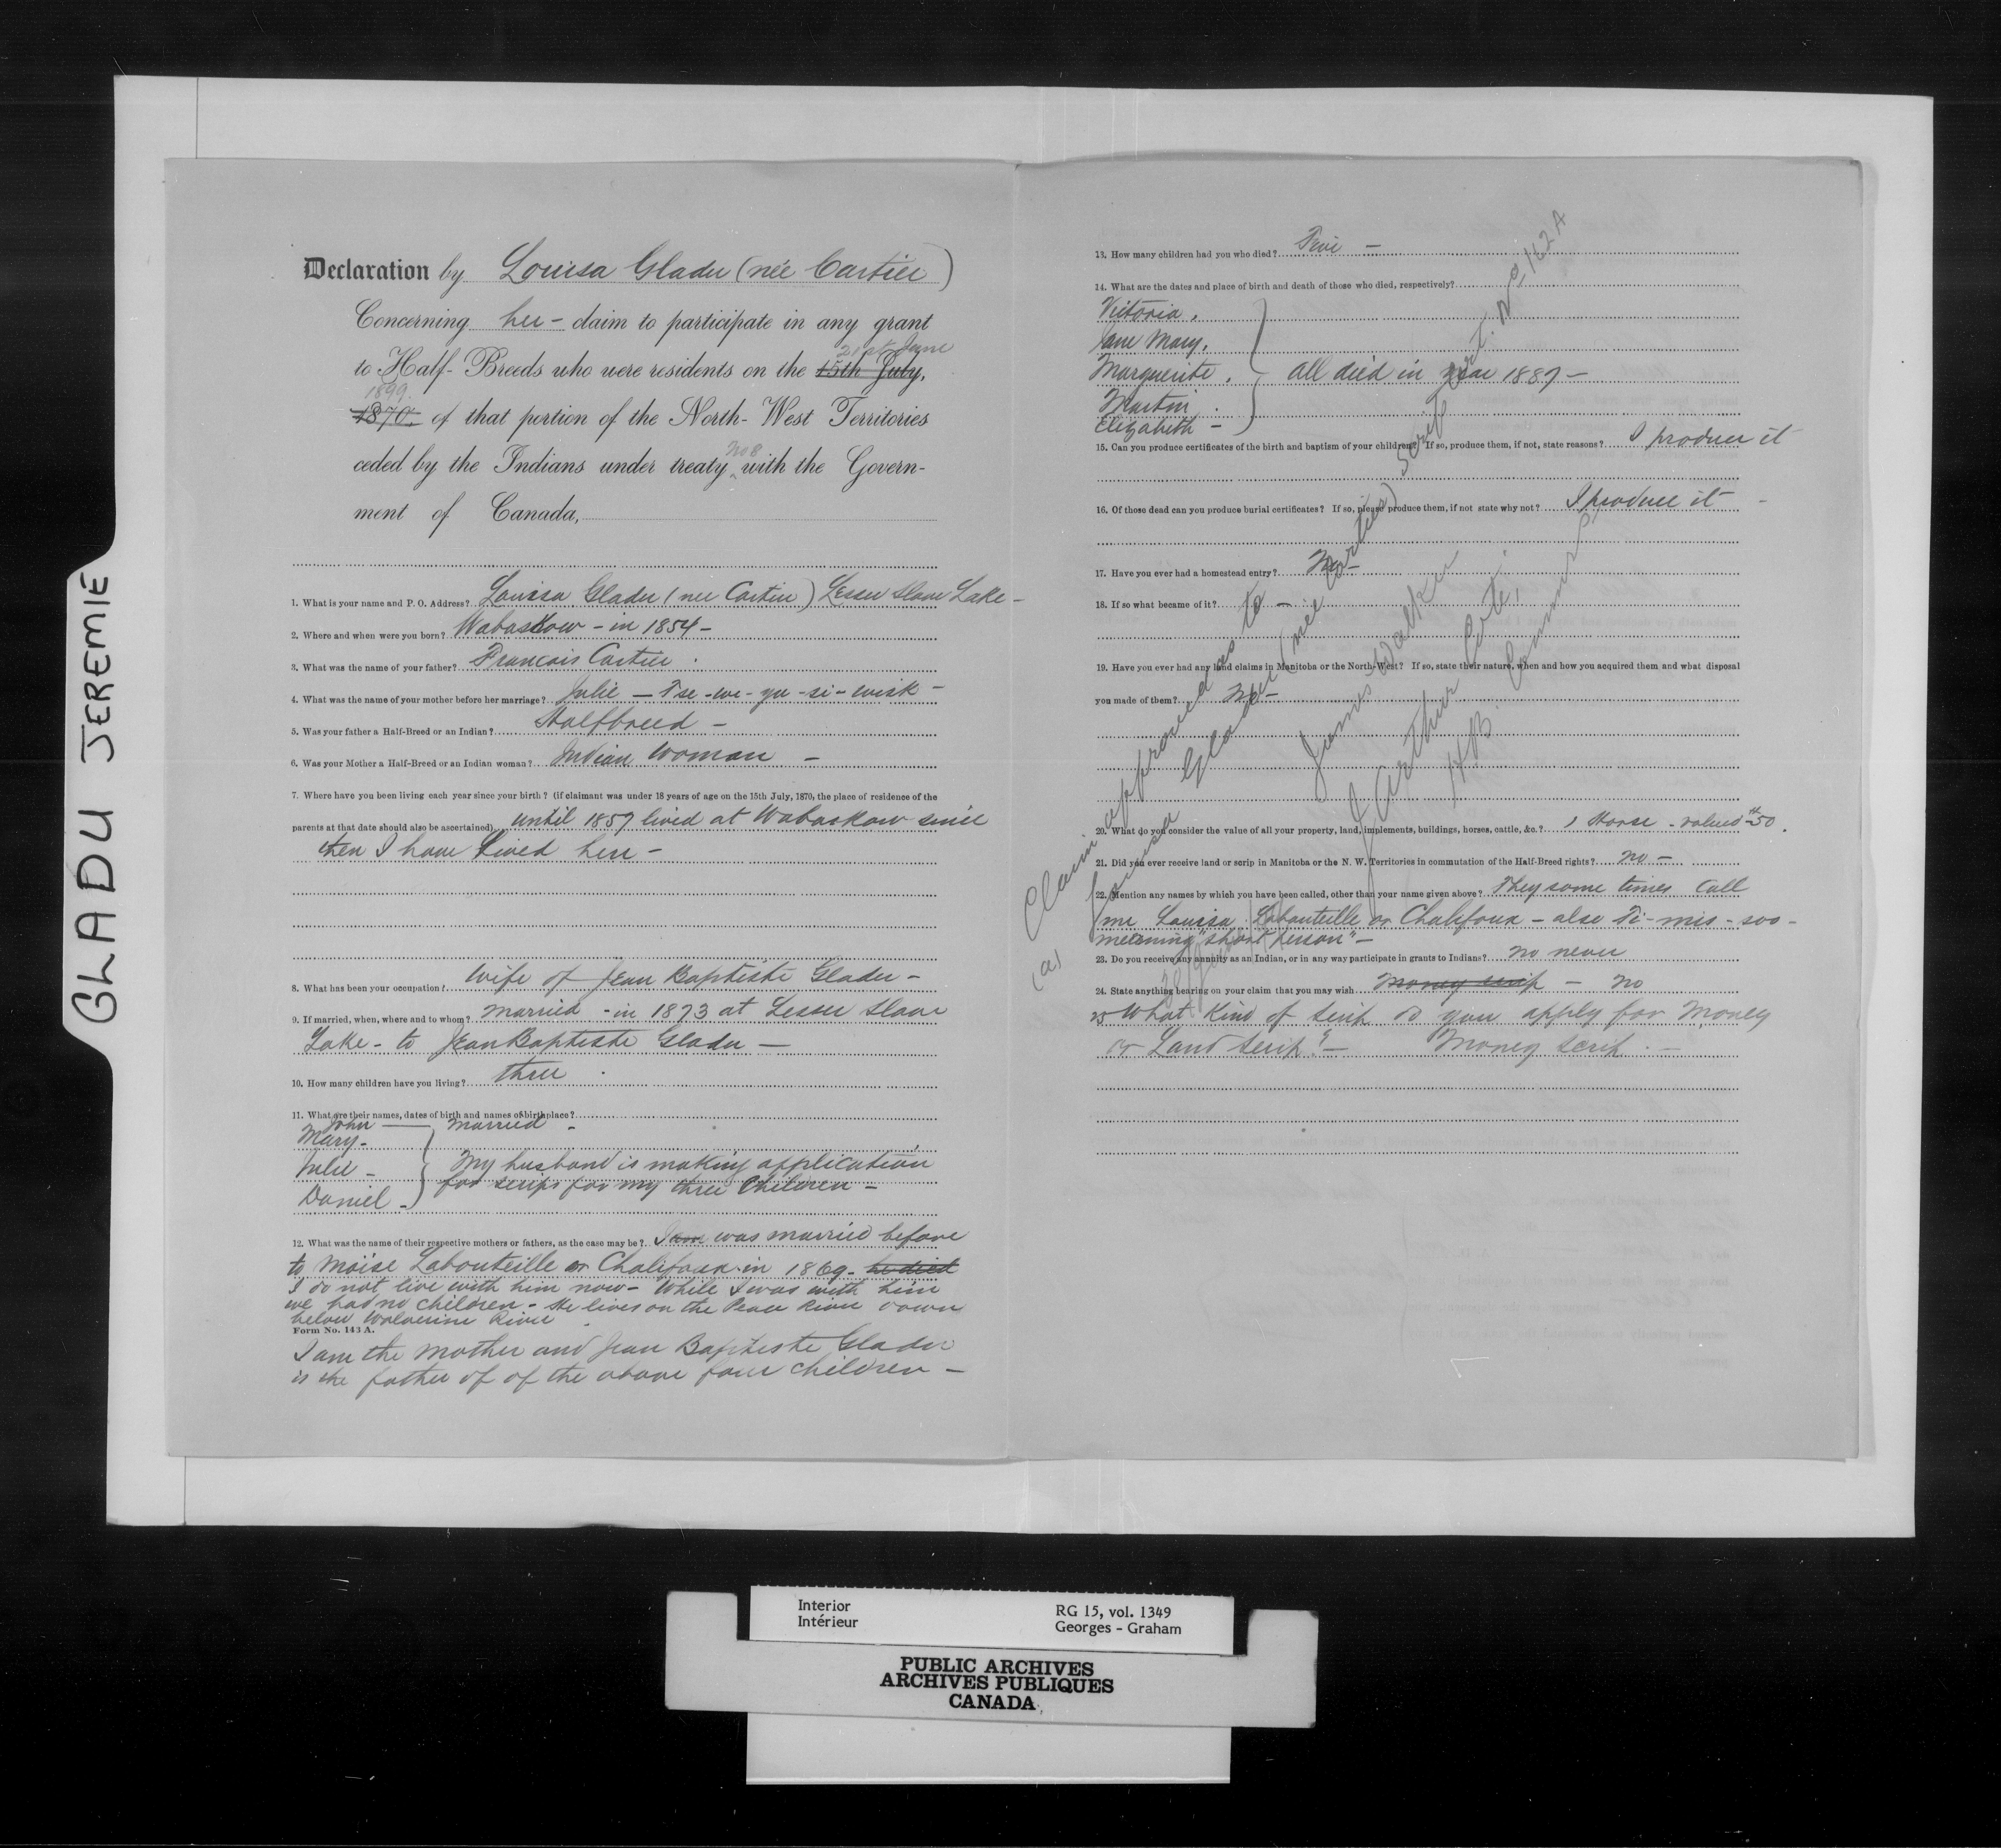 GLADU JEREMIE
Declaration by Louisa Gladu (née Cartier)
Concerning her - claim to participate in any grant
21st June
to Half-Breeds who were residents on the 15th July,
1899.
1870, of that portion of the North-West Territories
No 8
ceded by the Indians under treaty with the Govern-
ment of Canada,
1. What is your name and P. O. Address? Louisa Gladu (nee Cartier) Lesser Slave Lake -
2. Where and when were you born? Wabaskow - in 1854 -
3. What was the name of your father? Francois Cartier.
4. What was the name of your mother before her marriage? Julie - Tse-we-yu-si-wisk -
5. Was your father a Half-Breed or an Indian? Halfbreed -
6. Was your Mother a Half-Breed or an Indian woman? Indian Woman -
7. Where have you been living each year since your birth? (if claimant was under 18 years of age on the 15th July, 1870, the place of residence of the
parents at that date should also be ascertained) until 1857 lived at Wabaskow since
then I have lived here -
8. What has been your occupation? Wife of Jean Baptiste Gladu -
9. If married, when, where and to whom? Married - in 1873 at Lesser Slave
Lake - to Jean Baptiste Gladu -
10. How many children have you living? three.
11. What are their names, dates of birth and names of birthplace?
John - Married -
Mary -
Julie - My husband is making application
for scrips for my three Children -
Daniel -
12. What was the name of their respective mothers or fathers, as the case may be? I am was married before
to Moïse Labouteille or Chalifoux in 1869 - he died
I do not live with him now - While I was with him
we had no children - He lives on the Peace River down
below Wolverine River
Form No. 143 A.
I am the mother and Jean Baptiste Gladu
is the father of of the above four children -
13. How many children had you who died? Five -
14. What are the dates and place of birth and death of those who died, respectively?
Victoria,
Jane Mary,
Marguerite, all died in year 1887 -
Martin,
Elizabeth -
15. Can you produce certificates of the birth and baptism of your children? If so, produce them, if not, state reasons? I produce it
16. Of those dead can you produce burial certificates? If so, please produce them, if not state why not? I produce it -
17. Have you ever had a homestead entry? No -
18. If so what became of it? -
19. Have you ever had any land claims in Manitoba or the North-West? If so, state their nature, when and how you acquired them and what disposal
you made of them? No -
20. What do you consider the value of all your property, land, implements, buildings, horses, cattle, &c.? 1 Horse - valued $50.
21. Did you ever receive land or scrip in Manitoba or the N. W. Territories in commutation of the Half-Breed rights? no -
22. Mention any names by which you have been called, other than your name given above? They some times call
me Louisa Labouteille or Chalifoux - also Ti-mis-soo-
meaning "short person" -
23. Do you receive any annuity as an Indian, or in any way participate in grants to Indians? no never
24. State anything bearing on your claim that you may wish Money scrip - no
25 What Kind of scrip do you apply for Money
or Land Scrip? - Money Scrip. -
Claim approved as to
(a) Louisa Gladu (née Cartier) Scrip Cert. No. 162 A
James Walker
J Arthur Coté,
Interior
Intérieur
RG 15, vol. 1349
Georges - Graham
PUBLIC ARCHIVES
ARCHIVES PUBLIQUES
CANADA